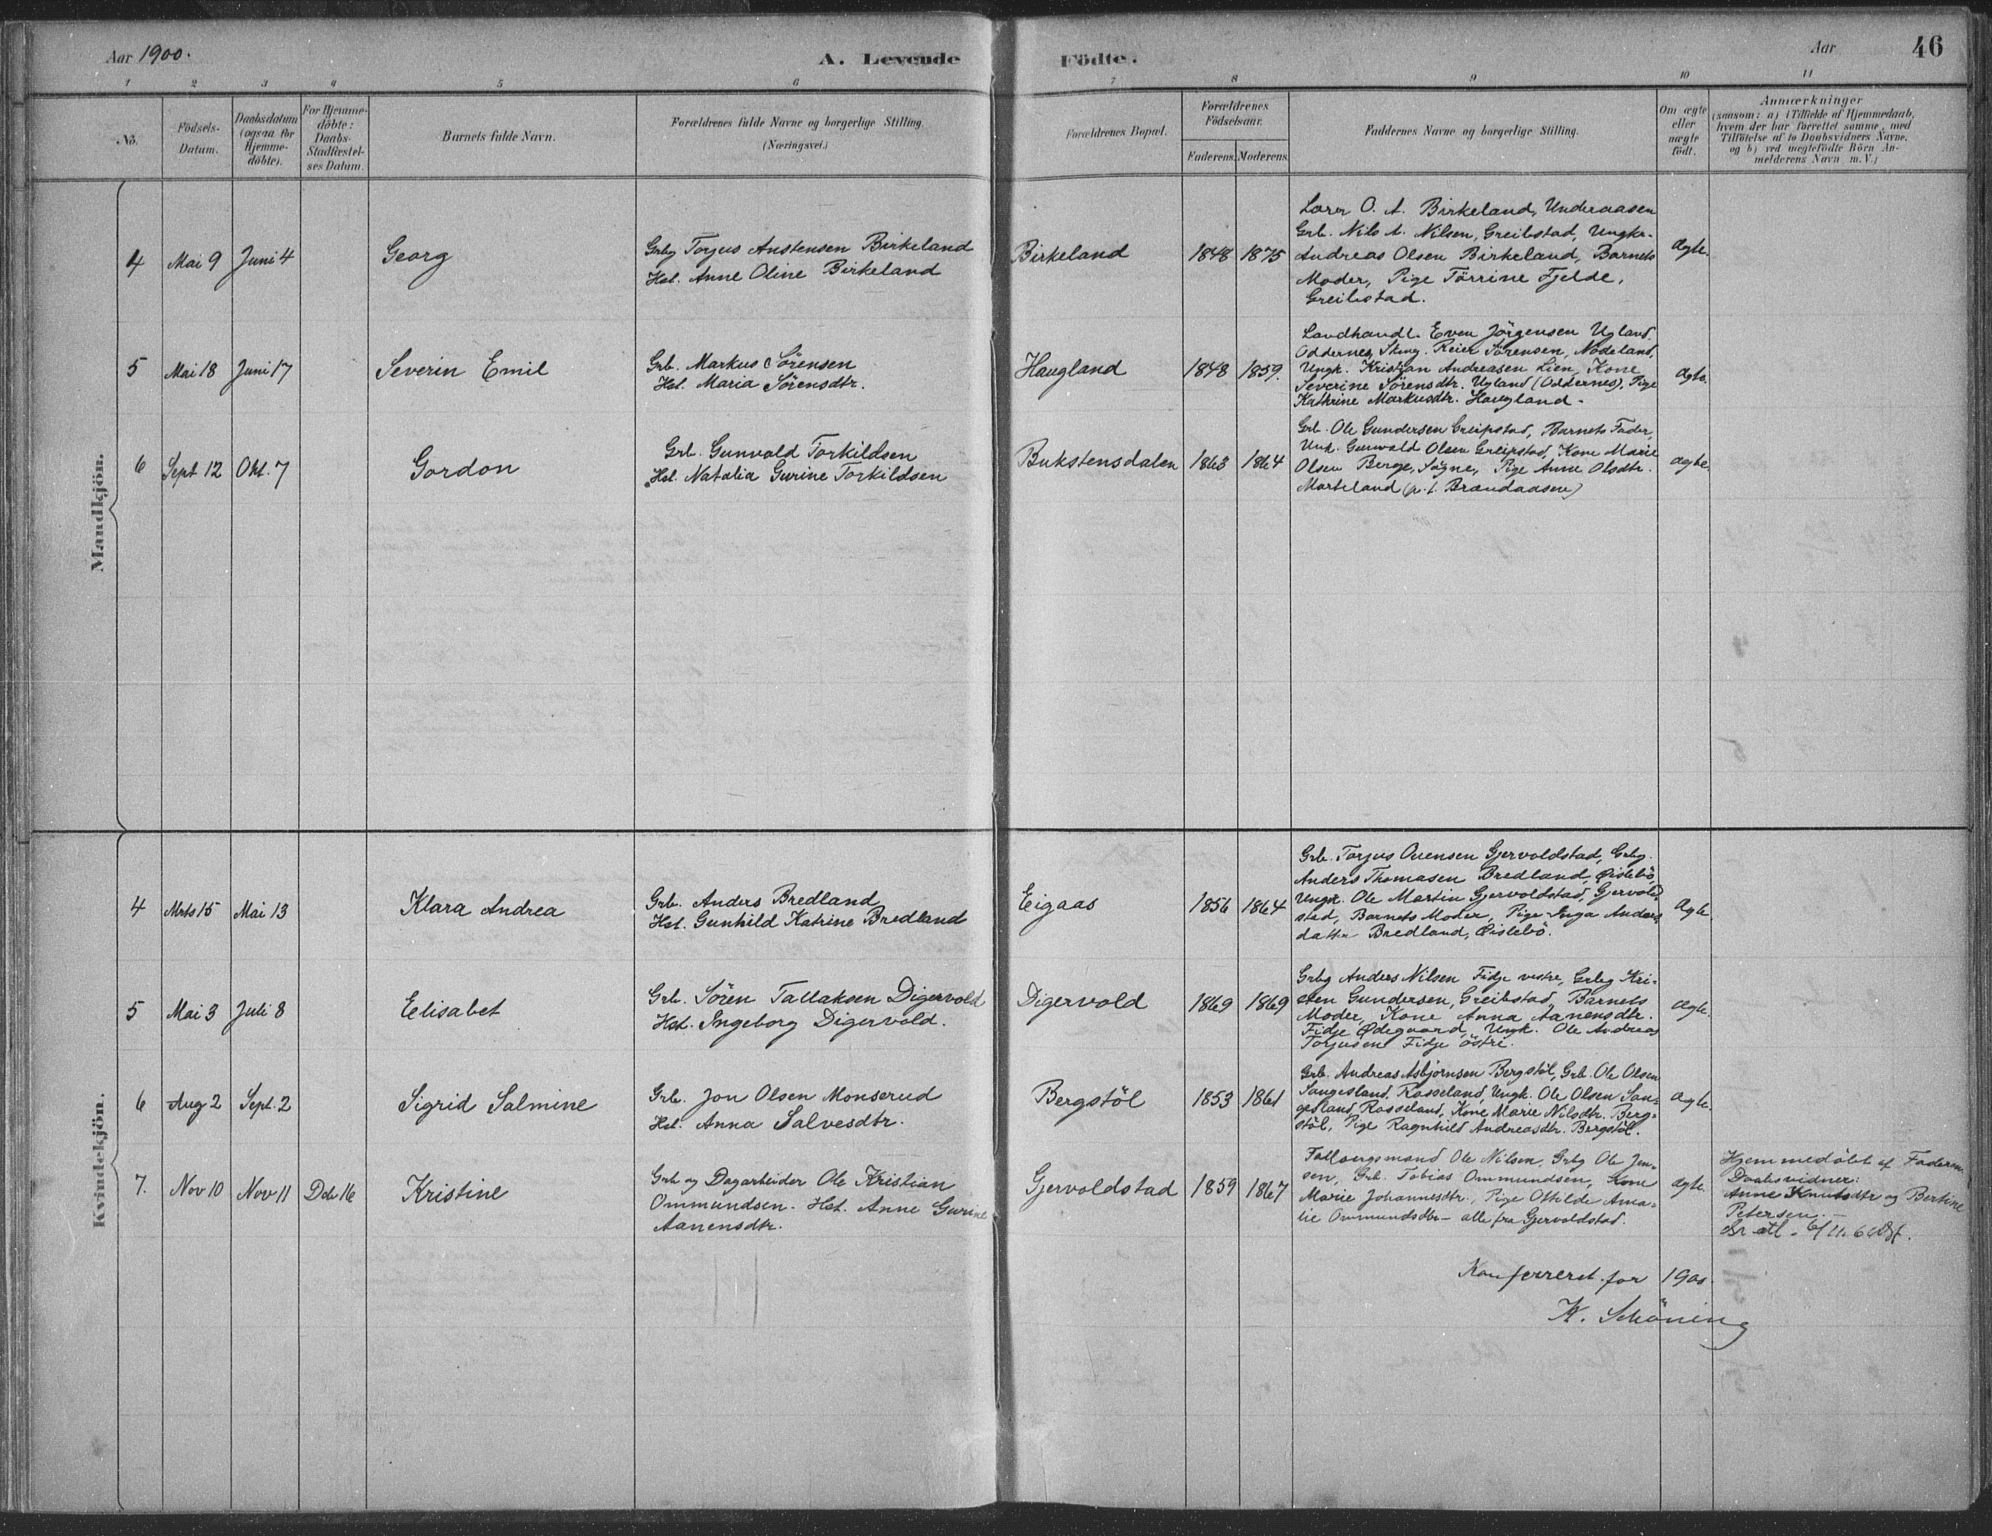 Aar 1900.
A. Levende Födte.
Aar
46
1 2 3 4 5 6 7 8 9 10 11
No.
Födsels-Datum.
Daabsdatum (ogsaa for Hjemme-döbte).
For Hjemme-döbte: Daabs-Stadfæstel-ses Datum.
Barnets fulde Navn.
Forældrenes fulde Navne og borgerlige Stilling.
(Næringsvei.)
Forældrenes Bopæl.
Forældrenes Födselsaar.
Faderens. Moderens.
Faddernes Navne og borgerlige Stilling.
Om ægte eller uægte födt.
Anmærkninger
(saasom: a) i Tilfælde af Hjemmedaab, hvem der har forrettet samme, med Tilföielse af to Daabsvidners Navne, og b) ved uægtefödte Börn An-melderens Navn m. V.)
Mandkjön.
4 Mai 9 Juni 4 Georg
Grbg Torjus Anstensen Birkeland
Hst. Anne Oline Birkeland
Birkeland 1848 1875
Lærer O. A. Birkeland, Underaasen
Grb. Nils A. Nilsen, Greibstad, Ungkr.
Andreas Olsen Birkeland, Barnets
Moder, Pige Törrine Fjelde,
Greibstad.
ægte.
5 Mai 18 Juni 17 Severin Emil
Grb. Markus Sörensen
Hst. Maria Sörensdtr.
Haugland 1848 1859.
Landhandl. Even Jörgensen Ugland
Oddernes, Reier Sörensen, Nodeland,
Ungk. Kristian Andreasen Lien, Kone
Severine Sörensdtr. Ugland (Oddernes), Pige
Kathrine Markusdtr. Haugland.
ægte.
6 Sept 12 Okt. 7 Gordon
Grb. Gunvald Torkildsen
Hst. Natalia Gurine Torkildsen
Bukstensdalen 1863 1864
Grb. Ole Gundersen Greipstad, Barnets Fader,
Unk. Gunvald Olsen Greipstad, Kone Marie
Olsen Berge, Sögne, Pige Anne Olsdtr.
Marteland (p. t. Brændaasen)
ægte.
Kvindekjön.
4 Mrts 15 Mai 13 Klara Andrea
Grb. Anders Bredland
Hst. Gunhild Katrine Bredland
Eigaas 1856 1864
Grb. Torjus Ouensen Gjervoldstad, Grbg.
Anders Thomasen Bredland, Øislebö,
Ungk. Ole Martin Gjervoldstad, Gjervold
stad, Barnets Moder, Pige Inga Anders
datter Bredland, Øislebö.
Ægte.
5 Mai 3 Juli 8 Elisabet
Grb. Sören Tallaksen Digervold
Hst. Ingeborg Digervold.
Digervold 1869 1869
Grbg Anders Nilsen Fidje vestre, Grbg Kri-
sten Gundersen, Greibstad, Barnets
Moder, Kone Anna Aanensdtr.
Fidje Ødegaard, Ungk. Ole Andreas
Torjusen Fidje östre.
ægte.
6 Aug 2 Sept. 2 Sigrid Salmine
Grb. Jon Olsen Monserud
Hst. Anna Salvesdtr.
Bergstöl 1853 1861
Grb. Andreas Asbjörnsen Bergstöl, Grb. Ole Olsen
Sangesland, Rosseland, Ungk. Ole Olsen San-
gesland, Rosseland, Kone Marie Nilsdtr. Berg-
stöl, Pige Ragnhild Andreasdtr. Bergstöl.
ægte.
7. Nov 10 Nov 11 Dcb 16 Kristine
Grb og Dagarbeider Ole Kristian
Ommundsen. Hst. Anne Gurine
Aanensdtr.
Gjervoldstad 1859 1867
Fattigmand Ole Nilsen, Grbg Ole Jen-
sen, Grb. Tobias Ommundsen, Kone
Marie Johannesdtr., Pige Othilde Ama-
lie Ommundsdtr - alle fra Gjervoldstad.
ægte.
Hjemmedöbt af Faderen.
Daabsvidner:
Anne Knutsdtr og Bertine
Petersen. -
Konfereret for 1900.
K. Schöning